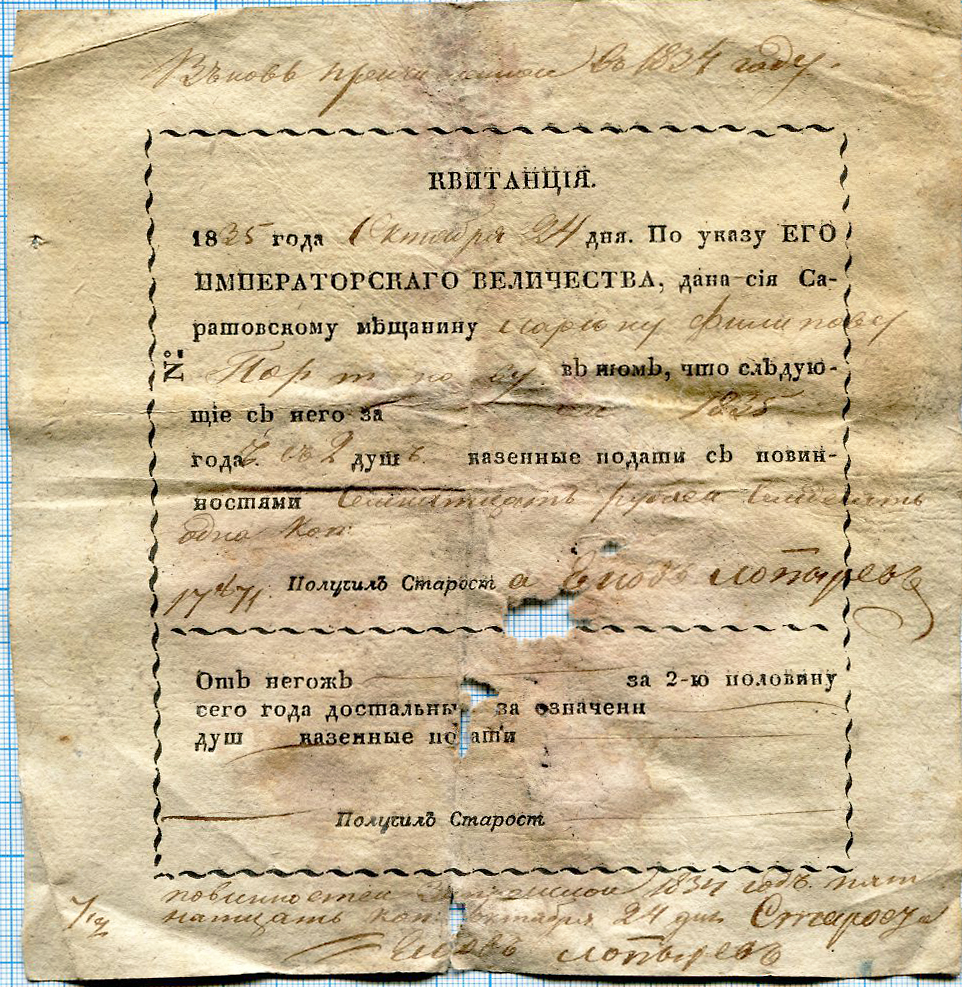 Вновь причисленной въ 1834 году.
КВИТАНЦІЯ.
1835 года Октября 24 дня. По указу ЕГО
ИМПЕРАТОРСКАГО ВЕЛИЧЕСТВА, дана сія Са-
ратовскому мѣщанину Марку Филипову
№
Портнову въ томъ, что слѣдую-
щіе съ него за 1835
года съ 2 душъ казенные подати съ повин-
ностями Семнатцать рублей Семдесятъ
одна коп.
17 71 Получилъ Староста Лопыревъ
Отъ негожъ за 2-ю половину
сего года достальны за означенн
душ казенные подати
Получилъ Старост
повинностей 1834 годъ пят
натцать коп. октября 24 дня Староста
Лопыревъ